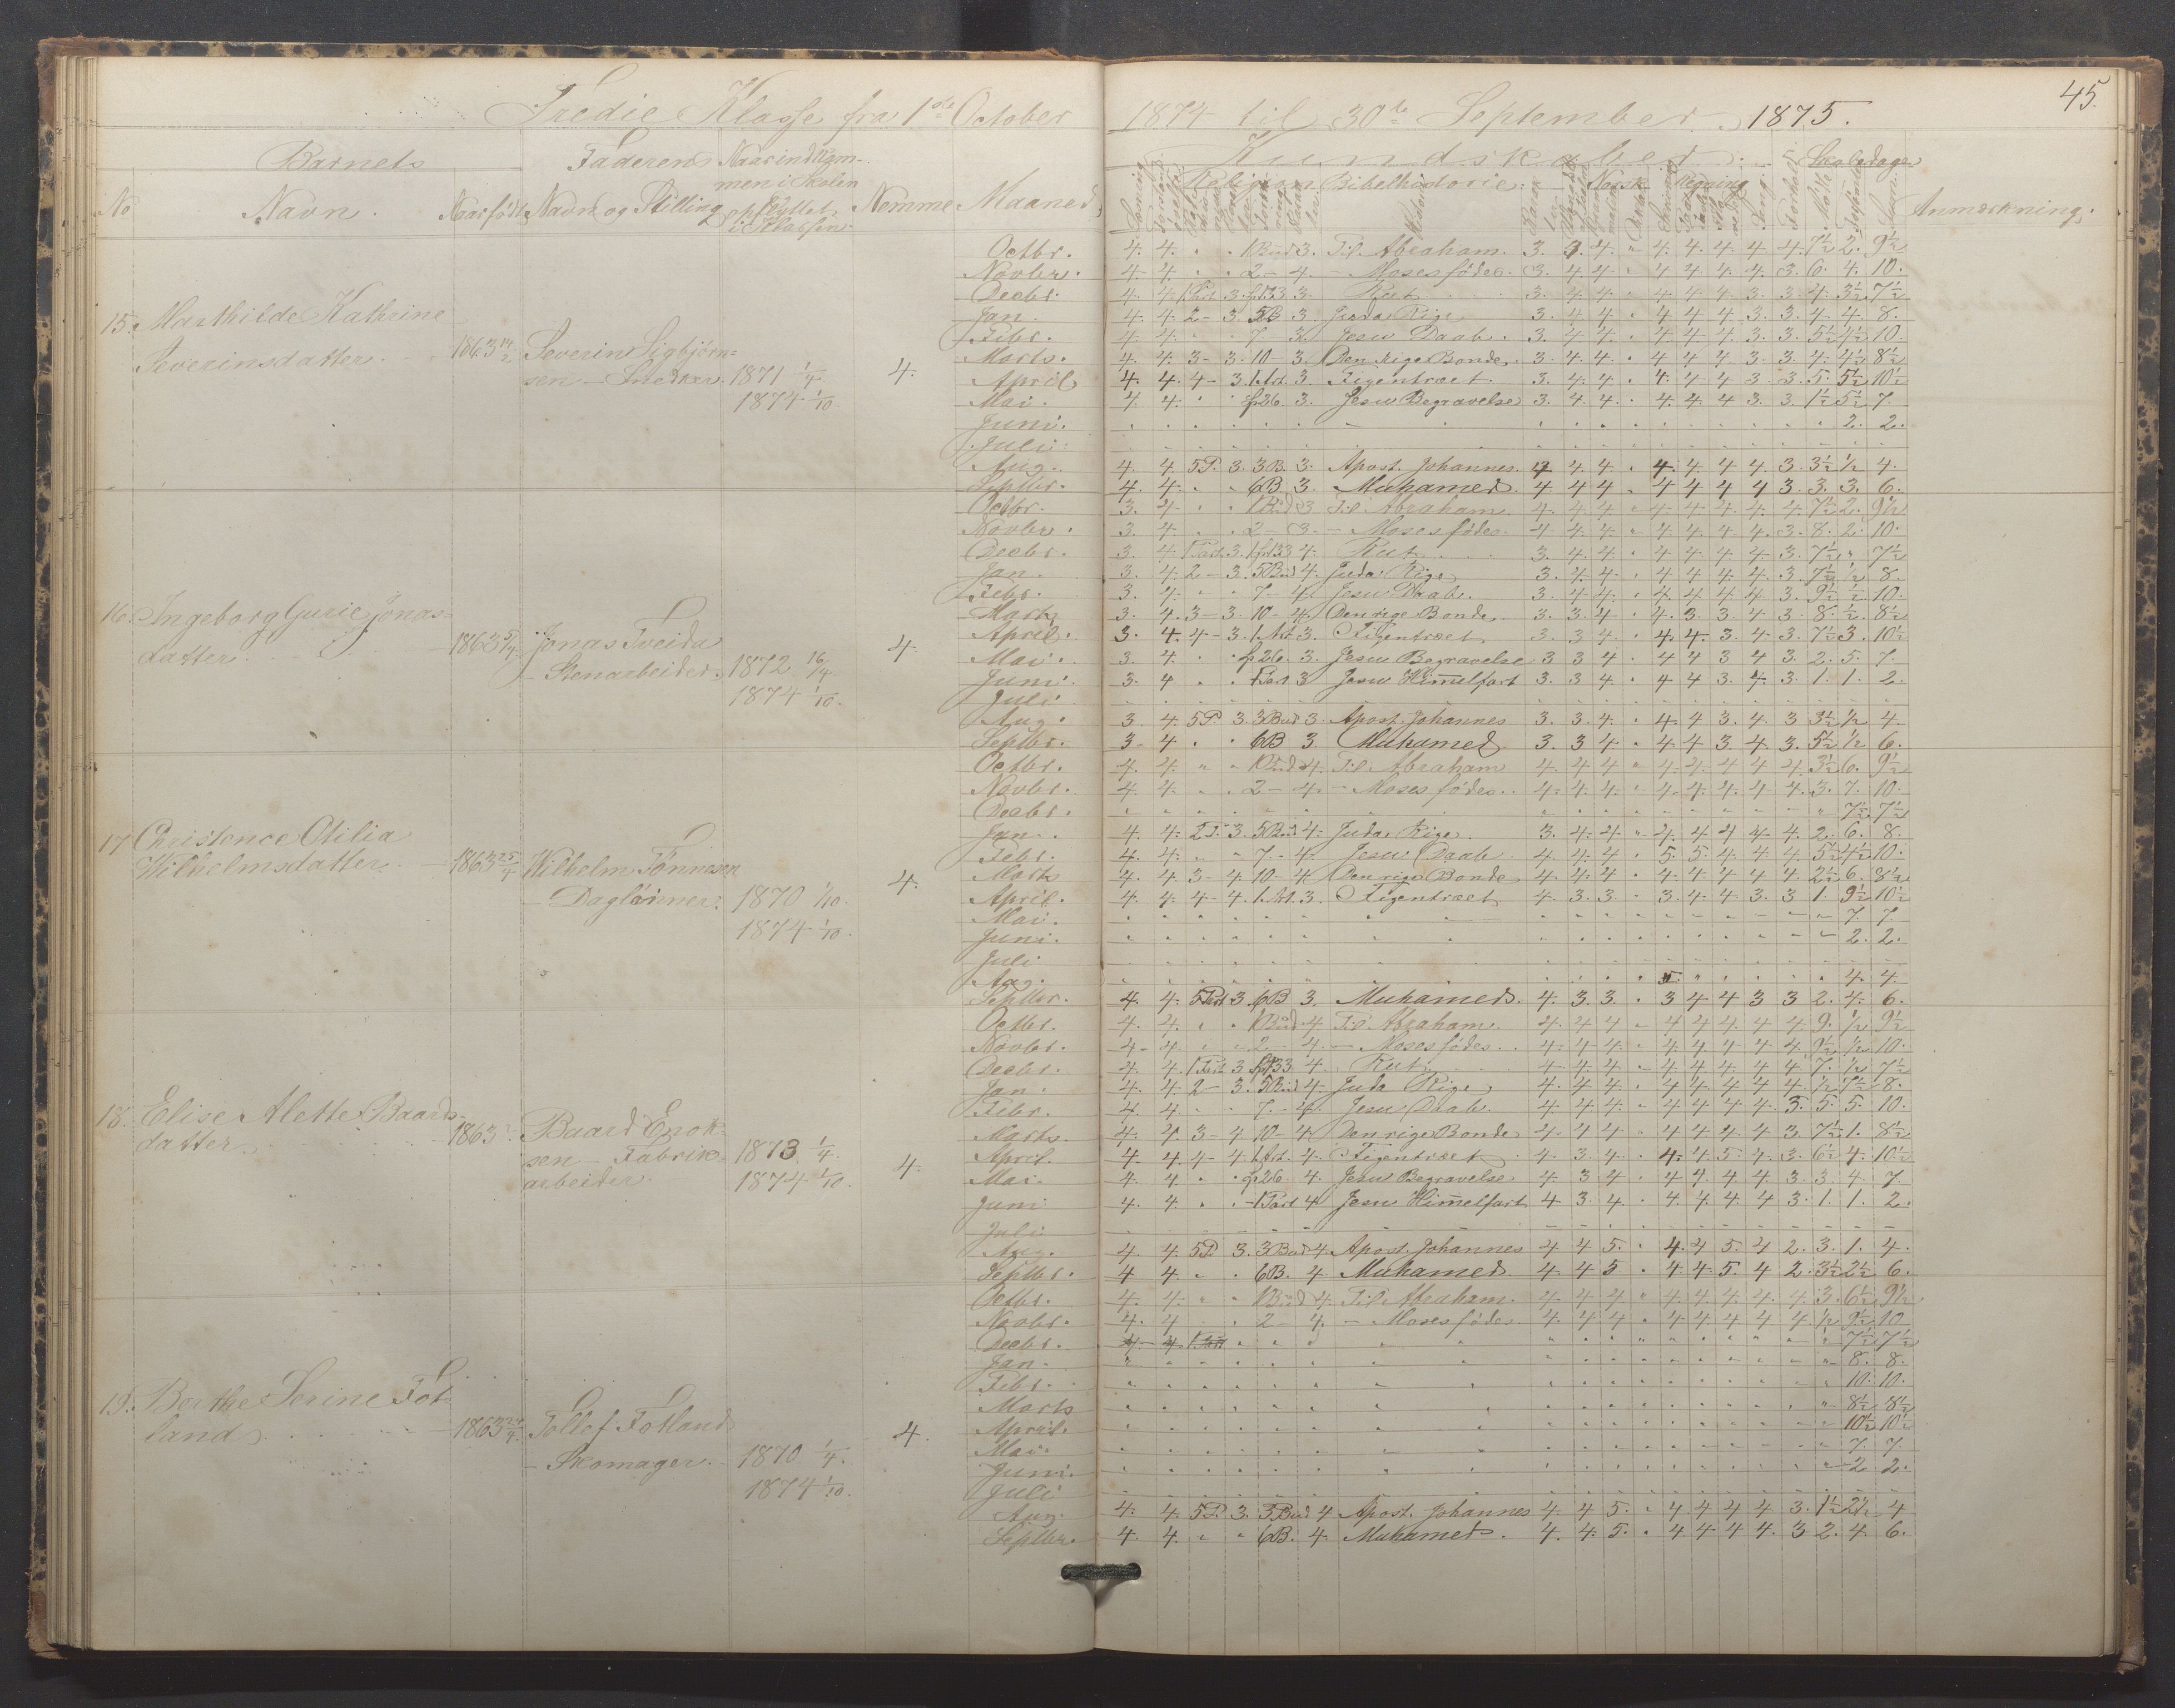 45.
Tredie Klasse fra 1ste October 1874 til 30te September 1875.
Barnets Faderens Naar indkom- Kundskaber. Skoledage
men i Skolen Religion Bibelhistorie. Norsk Regning
No Navn. Naar født Navn og Stilling opflyttet Nomme Maaned Anmærkning.
i Klassen.
Octbr. 4. 4. 1Bud 3. Til Abraham. 3. 4. 4. 4. 4. 4. 4. 7½ 2. 9½
Novbr. 4. 4. 2 - 4. - Moses fødes. 3. 4. 4. 4. 4. 4. 4. 3. 6. 4. 10.
Decbr. 4. 4. 1Part 3. 3. Rut 3. 4. 4. 4. 4. 4. 3. 3. 4. 3½ 7½
15. Marthilde Kathrine Jan. 4. 4. 2 - 3. 5B 3. Juda Rige 3. 4. 4. 4. 4. 4. 3. 3. 4. 4. 8.
Severinsdatter. 1863 14/2 Severin Sigbjørn= Febr. 4. 4. 7 - 3. Jesu Daab. 3. 4. 4. 4. 4. 4. 3. 3. 5½ 4½ 10.
Marts. 4. 4. 3 - 3. 10 - 3. Den rige Bonde 3. 4. 4. 4. 4. 4. 3. 3. 4. 4½ 8½
sen - Snedker. 1871 1/4 4. April 4. 4. 4 - 3. 1.Art. 3. Figentræet 3. 4. 4. 4. 4. 4. 3. 3. 5. 5½ 10½
1874 1/10 Mai. 4. 4. 26. 3. Jesu Begravelse 3. 4. 4. 4. 4. 4. 3. 3. 1½ 5½ 7.
Juni. 2. 2.
Juli.
Aug. 4. 4. 5P. 3. 3B. 3. Apost. Johannes. 4. 4. 4. 4. 4. 4. 3. 3½ ½ 4.
Septbr. 4. 4. 6B 3. Muhamed. 4. 4. 4. 4. 4. 4. 4. 3. 3. 3. 6.
Octbr. 3. 4. 1Bud 3 Til Abraham. 4. 4. 4. 4. 4. 4. 4. 4. 7½ 2. 9½
Novbr. 3. 4. 2 - 3. - Moses fødes. 4. 4. 4. 4. 4. 4. 4. 3. 8. 2. 10.
Decbr. 3. 4. 1Part. 3. 4. Rut 3. 4. 4. 4. 4. 4. 4. 3. 7½ 7½
Jan. 3. 4. 2 - 3. 5Bud 4. Juda Rige 3. 4. 4. 4. 4. 4. 4. 3. 7½ ½ 8.
Febr. 3. 4. 7 - 4. Jesu Daab. 3. 4. 4. 4. 4. 4. 4. 3. 9½ ½ 10.
16. Ingeborg Gurie Jonas= Marts 3. 4. 3 - 3. 10 - 4. Den rige Bonde 3. 3. 4. 4. 3. 3. 4. 3. 8. ½ 8½
datter. 1863 5/4 Jonas Tveida 4. April. 3. 4. 4 - 3. 1.Art 3. Figentræet 3. 3. 4. 4. 4. 3. 4. 3. 7½ 3. 10½
- Stenarbeider. 1872 16/4 Mai. 3. 4. 26. 3. Jesu Begravelse 3 3 4. 4 4 3 4 3. 2. 5. 7.
Juni. 3. 4 1Part 3 Jesu Himmelfart 3. 3 4. 4 4 3. 4. 3. 1. 1. 2.
1874 1/10. Juli
Aug. 3. 4. 5P. 3. 3Bud 3. Apost. Johannes 3. 3. 4. 4. 4. 3. 4. 3 3½ ½ 4.
Septbr. 3 - 4. 6B 3. Muhamed 3. 3 4. 4 4 3. 4. 3. 5½ ½ 6.
Octbr. 4. 4. 1Bud 4. Til Abraham 4. 4. 4. 4. 4. 4. 4. 4. 3½ 6. 9½
Novbr. 4. 4. 2 - 4. - Moses fødes. 4. 4. 4. 4. 4. 4. 4. 4. 3. 7. 10.
Decbr. 7½ 7½
17 Christence Otilia Jan. 4. 4. 2P. 3. 5Bud 4. Juda Rige. 3. 4. 4. 4. 4. 4. 4. 4. 2. 6. 8.
Wilhelmsdatter. 1863 25/4 Wilhelm Tønnesen Febr. 4. 4. 7 - 4. Jesu Daab 4. 4. 4. 5. 5. 4. 4. 4. 5½ 4½ 10.
Marts 4. 4. 3 - 4 10 - 4. Den rige Bonde 4. 4. 4. 4. 4. 4. 4. 4. 2½ 6. 8½
- Dagløinner. 1870 1/10. 4. April. 4. 4. 4 - 4. 1.Art. 3. Figentræet 4. 3. 3. 3. 4. 4 3 3 1. 9½ 10½
1874 1/10. Mai. 7. 7.
Juni. 2. 2.
Juli
Aug. 5. 4. 4.
Septbr. 4. 4. 5Part 3. 6B 3. Muhamed. 4. 3. 3. 3 4 4 3 3 2. 4. 6.
Octbr. 4. 4. 1Bud 4. Til Abraham. 4. 4. 4. 4. 4. 4. 4. 4. 9. ½ 9½
Novbr. 4 - 4. 2 - 4. - Moses fødes. 4. 4. 4. 4. 4. 4. 4. 4. 9½ ½ 10.
Decbr. 4. 4. 1Part 3. 4. Rut 4. 4. 4. 4. 4. 4. 4. 4. 7. ½ 7½
Jan. 4. 4. 2 - 3. 5Bud 4. Juda Rige 4. 4. 4. 4. 4. 4. 4. 4. ½ 7½ 8.
18. Elise Alette Baards= Febr. 4. 4. 7 - 4. Jesu Daab. 4. 4. 4. 4. 4. 4. 4. 3. 5. 5. 10.
datter. 1863 Baard Enok= Marts 4. 4. 3 - 4 10 - 4. Den rige Bonde 4. 4. 4. 4. 4. 4. 4. 3. 7½ 1. 8½
sen - Fabrik= 1873 1/4. 4. April. 4. 4. 4 - 4. 1.Art. 4. Figentræet 4. 3. 4. 4. 4. 5. 4. 3. 6½ 4. 10½
arbeider. 1874 1/10. Mai. 4. 4 26. 4. Jesu Begravelse 4. 3 4. 4. 4. 4. 4 3 3. 4. 7.
Juni 4. 4. 1Part 4 Jesu Himmelfart 4 3. 4. 4. 4. 4. 4 3. 1. 1. 2.
Juli
Aug. 4. 4. 5P. 3. 3Bud 4. Apost. Johannes 4 4 5. 4. 4. 5. 4 2. 3. 1. 4.
Septbr. 4 4. 6B. 4 Muhamed. 4. 4. 5. 4. 4. 5. 4 2. 3½ 2½ 6.
Octbr. 4. 4. 1Bud 4. Til Abraham. 4. 4. 4. 4. 4. 4. 4. 4. 3. 6½ 9½
Novbr. 4. 4 2 - 4. - Moses fødes. 4. 4. 4. 4. 4. 4. 4. 4. ½ 9½ 10
Decbr. 4 - 4. 7½ 7½
Jan. 8. 8.
Febr. 10. 10.
19. Berthe Serine Fot= Marts 8½ 8½
land 1863 24/4. Tollef Fotland 4. April. 10½ 10½
- Skomager. 1870 1/4. Mai. 7. 7.
Juni. 2. 2.
1874 1/10. Juli
Aug. 4. 4. 5P. 3. 3Bud 4 Apost. Johannes 4. 4 5. 4. 4. 4. 4 3. 1½ 2½ 4
Septbr. 4. 4. 6B. 4. Muhamed. 4. 4. 5. 4. 4. 4. 4. 3 2. 4. 6.